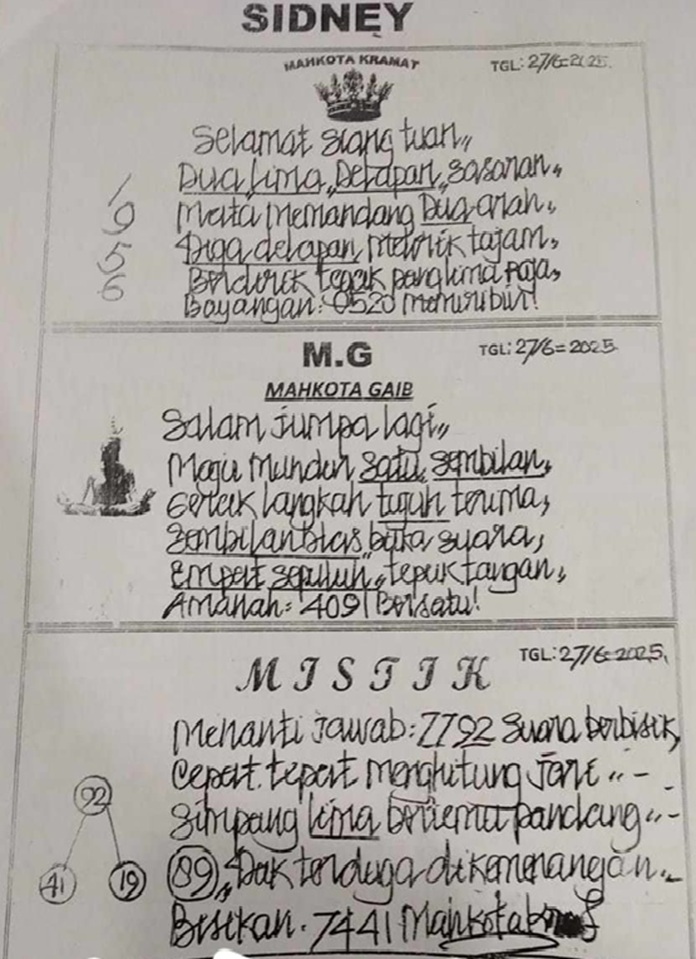 SIDNEY
MAHKOTA KRAMAT
TGL: 27/6=2025.
Selamat siang tuan,,
Dua lima,, Delapan,, sasaran,,
1
9
5
6
Mata Memandang Dua arah,,
Tiga delapan melirik tajam,
Berderik tegak panglima Raja,
Bayangan: 0520 memuribu!
M.G
TGL: 27/6=2025
MAHKOTA GAIB
Salam jumpa lagi,,
Maju Mundur Satu, sembilan,
Gerak langkah tujuh terima,
Sembilanblas,, buka suara,
Empat sepuluh,, tepuk tangan,
Amanah: 4091 Bersatu!
MISTIK
TGL: 27/6=2025,
Menanti jawab: 7792 suara berbisik,
Cepat. tepat menghitung jari ,,--
92
41
19
Simpang lima bertemu pandang ,,--
89,, Tak terduga di kemenangan..
Bisikan. 7441